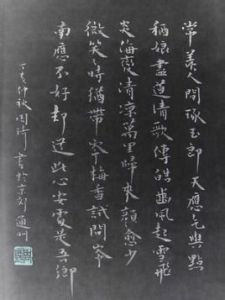 常羡人間琢玉郎天應乞與點
酥娘盡道清歌傳皓齒風起雪飛
炎海變清凉萬里歸來顔愈少
微笑々時猶帶嶺梅香試問嶺
南應不好却道此心安處是吾鄉
丁亥仲秋周書於京郊通州